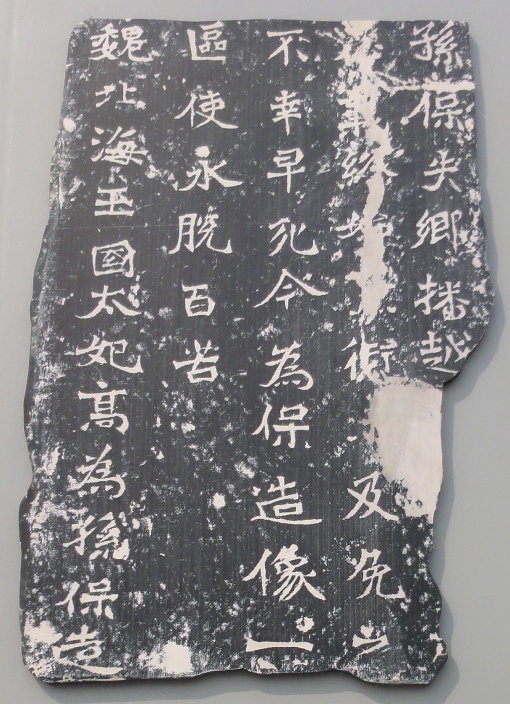 孫保失鄉播越
終始及免
不幸早死今為保造像一
區使永脫百苦
魏北海王國太妃高為孫保造